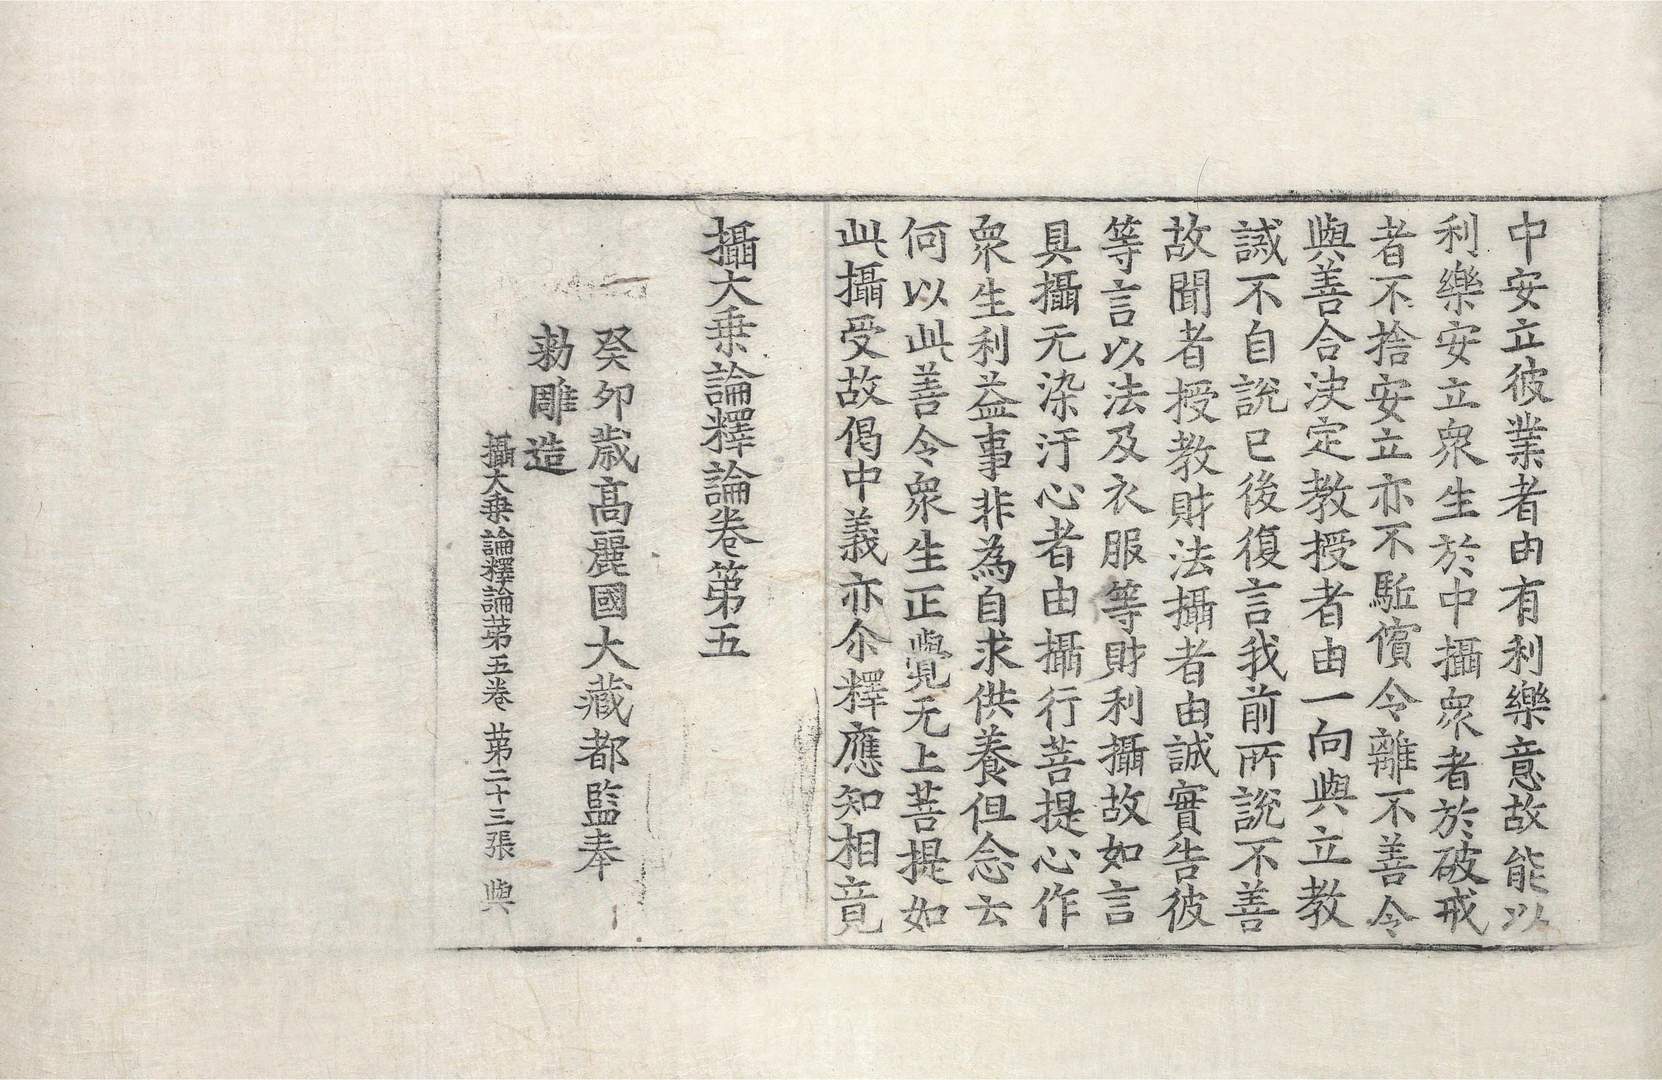 中安立彼業者由有利樂意故能以
利樂安立衆生於中攝衆者於破戒
者不捨安立亦不駈償令離不善令
與善合決定教授者由一向與立教
誡不自說已後復言我前所說不善
故聞者授教財法攝者由誠實告彼
等言以法及衣服等財利攝故如言
具攝无染汙心者由攝行菩提心作
衆生利益事非為自求供養但念云
何以此善令衆生正覺无上菩提如
此攝受故偈中義亦尒釋應知相竟
攝大乗論釋論卷第五
癸卯歲高麗國大藏都監奉
勅雕造
攝大乗論釋論苐五卷 苐二十三張 與